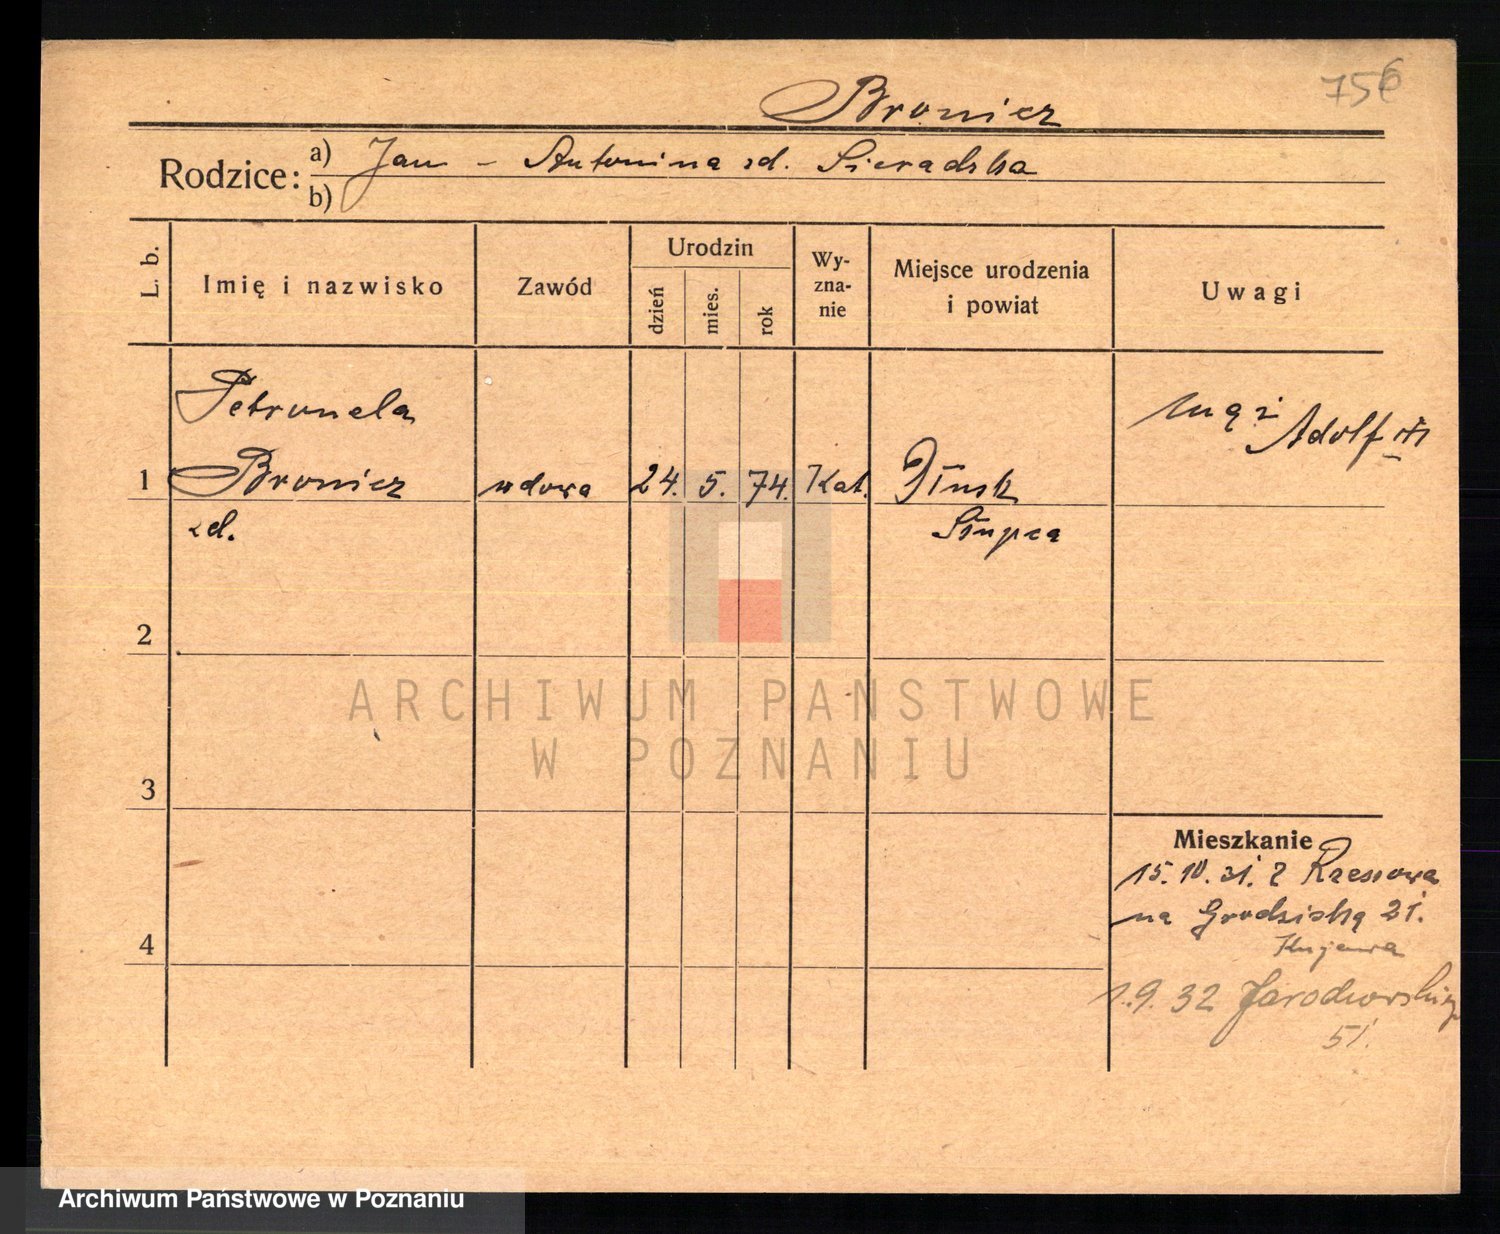 756
Bronicz
Rodzice: a) Jan – Antonina zd. Sieradzka
b)
L. b.
Imię i nazwisko
Zawód
Urodzin
dzień
mies.
rok
Wy-
zna-
nie
Miejsce urodzenia
i powiat
Uwagi
Petronela
1 Bronicz wdowa 24. 5. 74. Kat. Dłusk
zd. Słupca
mąż
Adolf
2
ARCHIWUM PAŃSTWOWE
W POZNANIU
3
Mieszkanie
15.10.31. z
na Grodziską 21.
Kujawa
4
1.9.32
51.
Archiwum Państwowe w Poznaniu